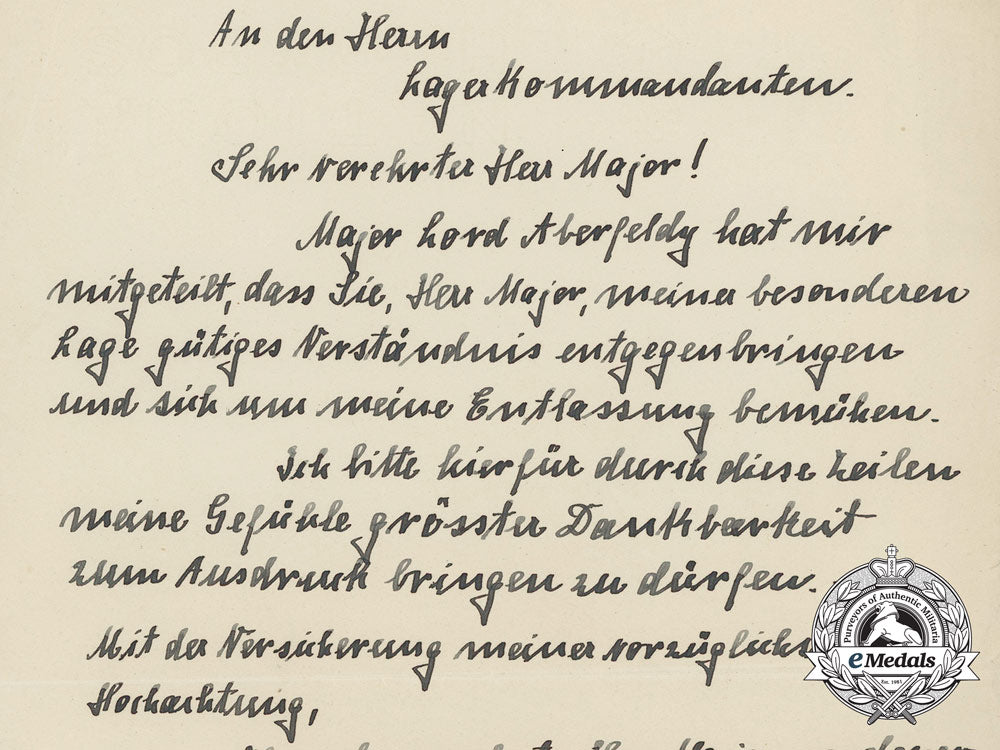 An den Herrn
Lagerkommandanten.
Sehr verehrter Herr Major!
Major Lord Aberfeldy hat mir
mitgeteilt, dass Sie, Herr Major, meiner besonderen
Lage gütiges Verständnis entgegenbringen
und sich um meine Entlassung bemühen.
Ich bitte hierfür durch diese Zeilen
meine Gefühle grösster Dankbarkeit
zum Ausdruck bringen zu dürfen.
Mit der Versicherung meiner vorzüglichs
Hochachtung,
Purveyors of Authentic Militaria
eMedals
Est. 1981